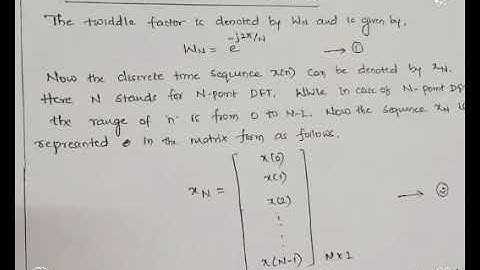 The twiddle factor is denoted by WN and is given by,
WN = e^-j2π/N → ①
Now the discrete time sequence x(n) can be denoted by xN.
Here N stands for N-point DFT. While in case of N-point DFT
the range of 'n' is from 0 to N-1. Now the sequence xN is
represented in the matrix form as follows.
x(0)
x(1)
xN = x(2) → ②
⋮
x(N-1) N×1